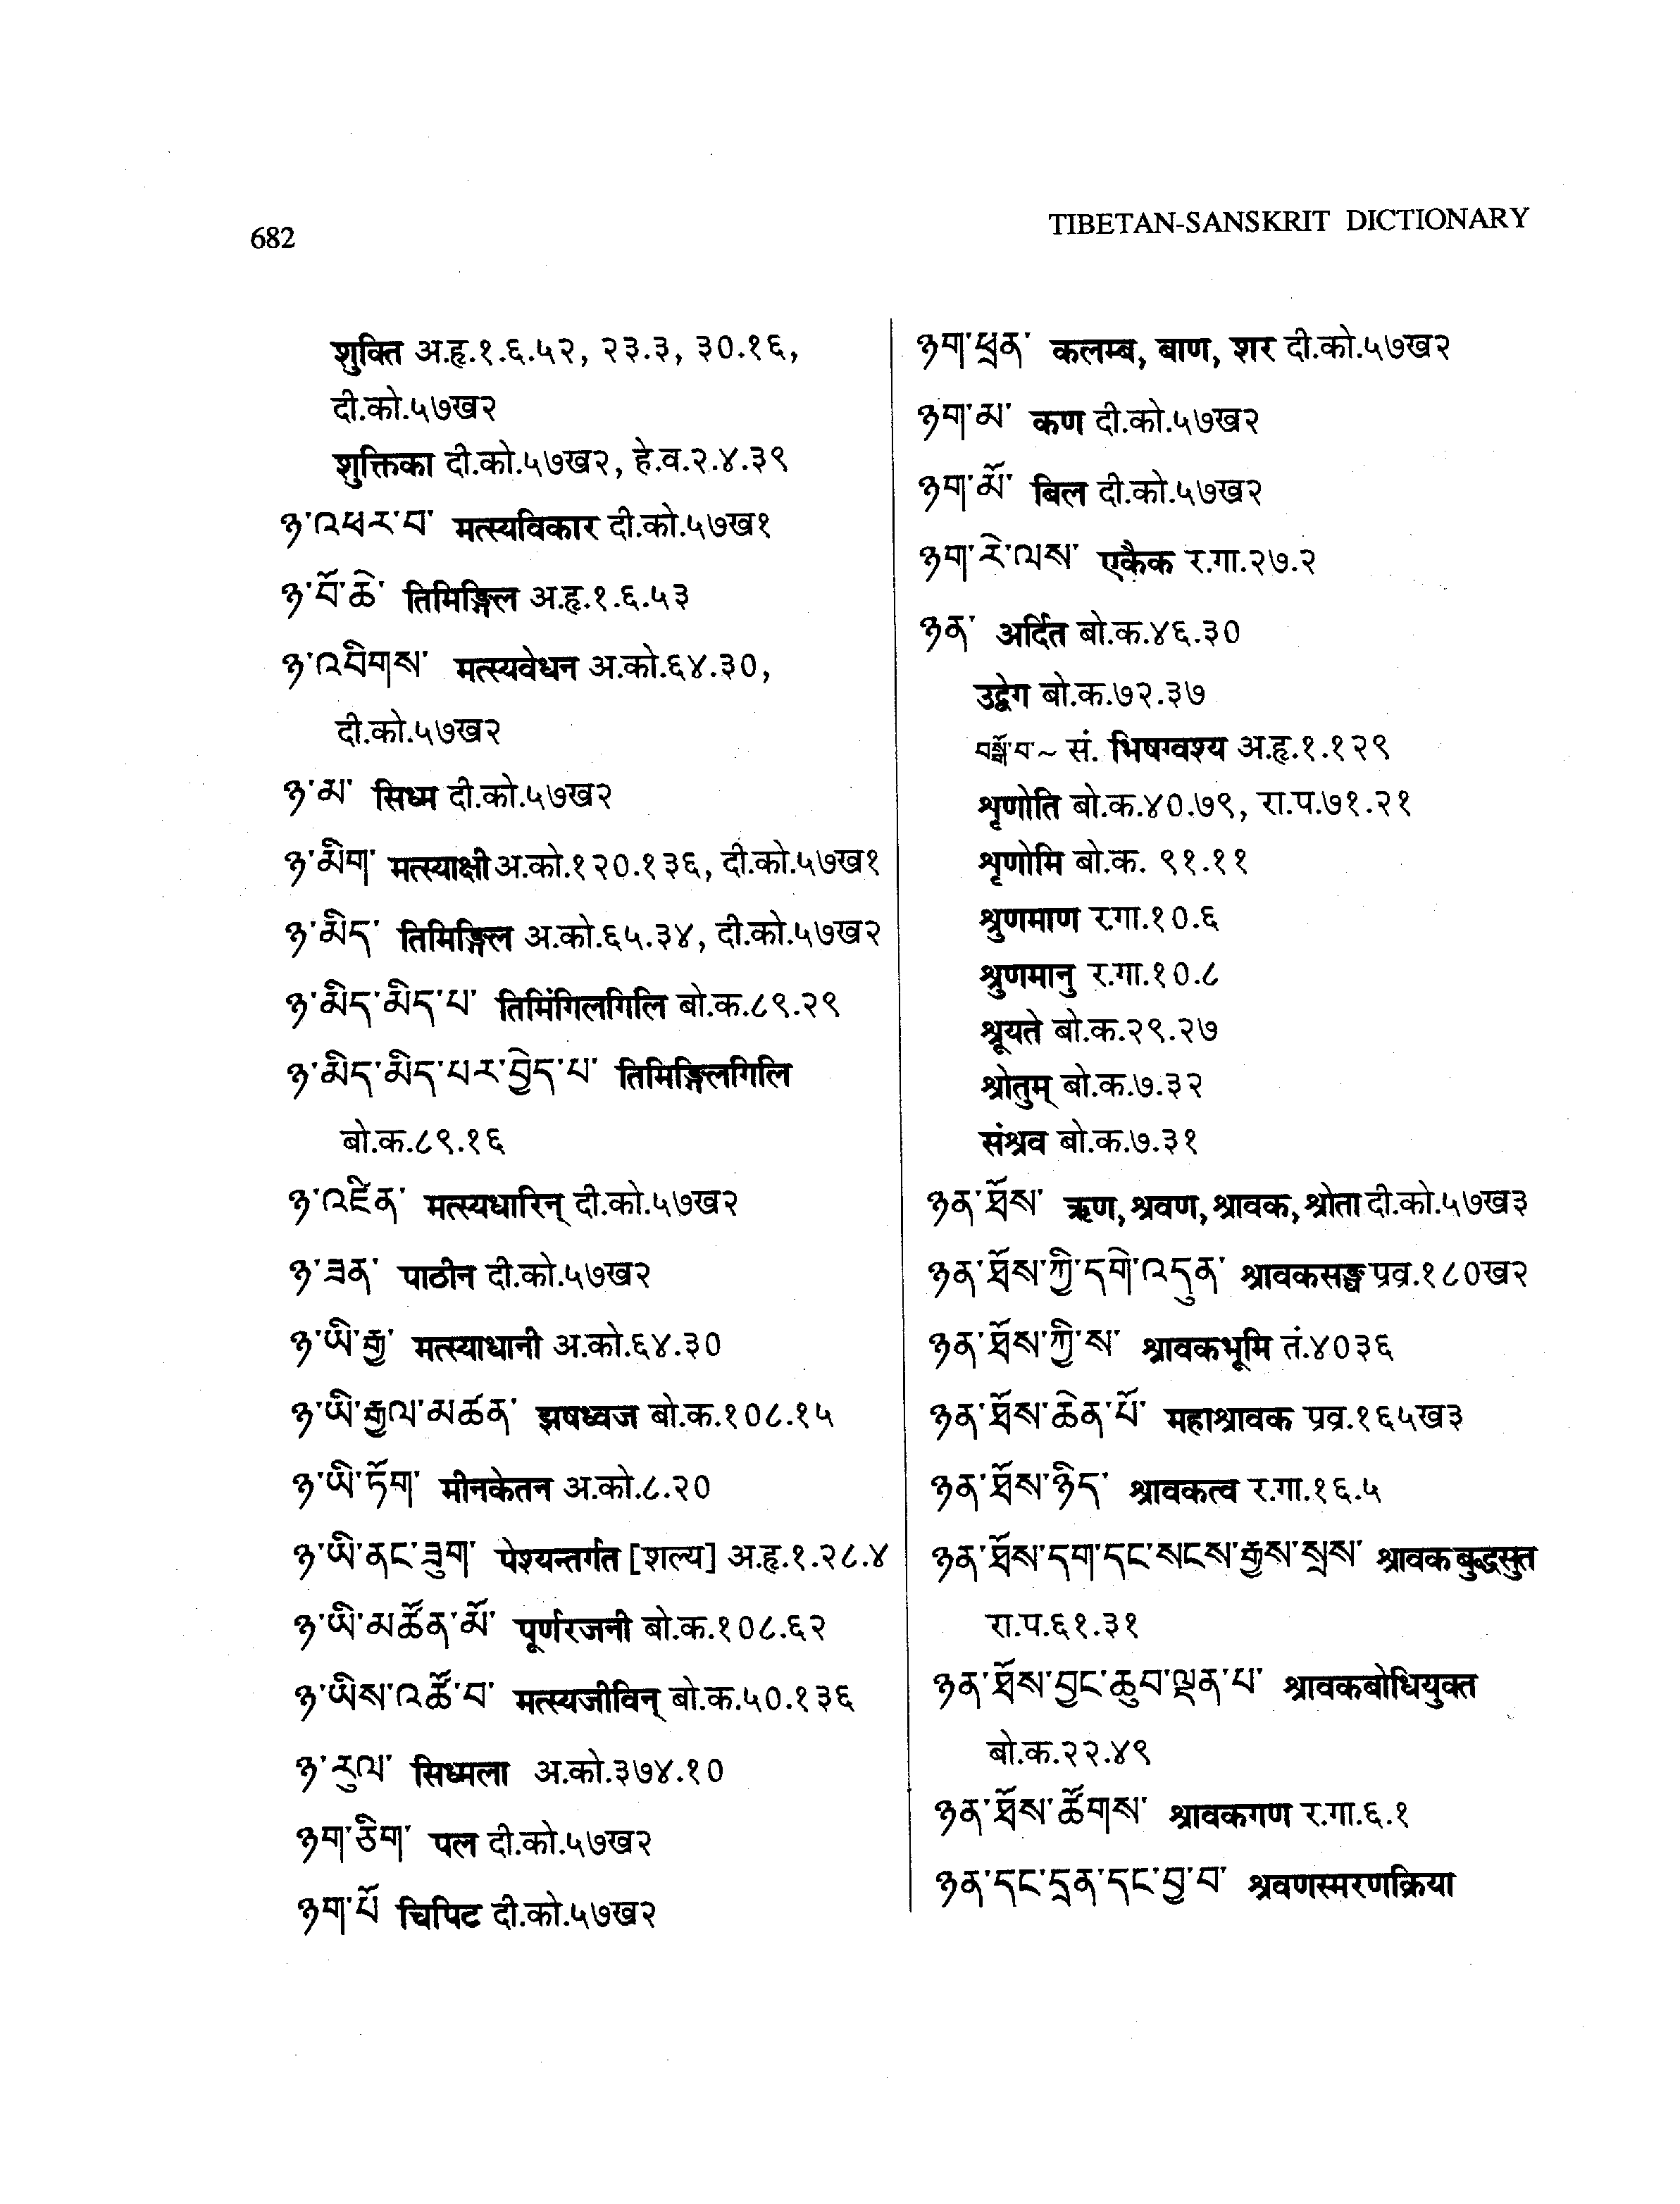 682
TIBETAN-SANSKRIT DICTIONARY
शुक्ति अ.हृ.१.६.५२, २३.३, ३०.१६,
दी.को.५७ख२
शुक्तिका दी.को.५७ख२, हे.व.२.४.३९
ཉ་འཕར་བ་ मत्स्यविकार दी.को.५७ख१
ཉ་བོ་ཆེ་ तिमिङ्गिल अ.हृ.१.६.५३
ཉ་འབིགས་ मत्स्यवेधन अ.को.६४.३०,
दी.को.५७ख२
ཉ་མ་ सिध्म दी.को.५७ख२
ཉ་མིག་ मत्स्याक्षी अ.को.१२०.१३६, दी.को.५७ख१
ཉ་མིད་ तिमिङ्गिल अ.को.६५.३४, दी.को.५७ख२
ཉ་མིད་མིད་པ་ तिमिंगिलगिलि बो.क.८९.२९
ཉ་མིད་མིད་པར་བྱེད་པ་ तिमिङ्गिलगिलि
बो.क.८९.१६
ཉ་འཛིན་ मत्स्यधारिन् दी.को.५७ख२
ཉ་ཟན་ पाठीन दी.को.५७ख२
ཉ་ཡི་རྒྱ་ मत्स्याधानी अ.को.६४.३०
ཉ་ཡི་རྒྱལ་མཚན་ झषध्वज बो.क.१०८.१५
ཉ་ཡི་ཏོག་ मीनकेतन अ.को.८.२०
ཉ་ཡི་ནང་ཟུག་ पेश्यन्तर्गत [शल्य] अ.हृ.१.२८.४
ཉ་ཡི་མཚོན་མོ་ पूर्णरजनी बो.क.१०८.६२
ཉ་ཡིས་འཚོ་བ་ मत्स्यजीविन् बो.क.५०.१३६
ཉ་རུལ་ सिध्मला अ.को.३७४.१०
ཉག་ཅིག་ पल दी.को.५७ख२
ཉག་པོ་ चिपिट दी.को.५७ख२
ཉག་ཕྲན་ कलम्ब, बाण, शर दी.को.५७ख२
ཉག་མ་ कण दी.को.५७ख२
ཉག་མོ་ बिल दी.को.५७ख२
ཉག་རེ་ལས་ एकैक र.गा.२७.२
ཉན་ अर्दित बो.क.४६.३०
उद्वेग बो.क.७२.३७
བསྒོ་བ་~ सं. भिषग्वश्य अ.हृ.१.१२९
शृणोति बो.क.४०.७९, रा.प.७१.२१
शृणोमि बो.क. ९१.११
श्रुणमाण र.गा.१०.६
श्रुणमानु र.गा.१०.८
श्रूयते बो.क.२९.२७
श्रोतुम् बो.क.७.३२
संश्रव बो.क.७.३१
ཉན་ཐོས་ ऋण, श्रवण, श्रावक, श्रोता दी.को.५७ख३
ཉན་ཐོས་ཀྱི་དགེ་འདུན་ श्रावकसङ्घ प्रव्र.१८०ख२
ཉན་ཐོས་ཀྱི་ས་ श्रावकभूमि तं.४०३६
ཉན་ཐོས་ཆེན་པོ་ महाश्रावक प्रव्र.१६५ख३
ཉན་ཐོས་ཉིད་ श्रावकत्व र.गा.१६.५
ཉན་ཐོས་དག་དང་སངས་རྒྱས་སྲས་ श्रावक बुद्धसुत
रा.प.६१.३१
ཉན་ཐོས་བྱང་ཆུབ་ལྡན་པ་ श्रावकबोधियुक्त
बो.क.२२.४९
ཉན་ཐོས་ཚོགས་ श्रावकगण र.गा.६.१
ཉན་དང་དྲན་དང་བྱ་བ་ श्रवणस्मरणक्रिया